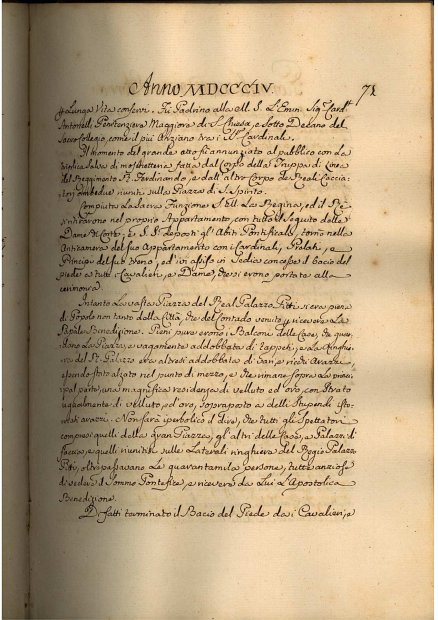 Anno MDCCCIV. 71
Lunga Vita conservi. Fu Padrino alla M. S. L'Emo Sigr Cardl
Antonelli Penitenziere Maggiore di S. Chiesa, e Sotto Decano del
Sacro Collegio, come il più Anziano trai Cardinali.
Il Momento del grande atto fu annunziato al pubblico con La
triplice Salva di moschetteria fatta dal Corpo della Truppa di Linea
del Reggimento Rl Ferdinando, e dall'altro Corpo de Reali Caccia:
tori ambedue riuniti sulla Piazza di S. Spirito.
Compiuta La Sacra Funzione S. M. La Regina, ed il Re
entrarono nel proprio Appartamento, con tutto il seguito delle
Dame di Corte, e S. S. deposti gl'Abiti Pontificali, tornò nella
Anticamera del suo Appartamento con i Cardinali, Prelati, e
Principi del suo treno, ed ivi assiso in Sedia concesse il bacio del
piede a tutti i Cavalieri, e Dame, che si erono portate alla
cerimonia.
Intanto La vasta Piazza del Real Palazzo Pitti si era piena
di Popolo non tanto della Città, che del Contado venuto per ricevere La
Papale Benedizione. Pieni pure erono i Balconi delle Case, che guar:
dono La Piazza, e vagamente addobbati di Tappeti; e La ringhie:
ra del Rl Palazzo era altresì addobbata di vari, e ricchi Arazzi
essendo stato alzato nel punto di mezzo, e che rimane sopra La princi:
pal porta, una magnifica residenza di velluto ed oro, con Strato
ugualmente di velluto, ed'oro, sopraposto a delli stupendi isto:
riati arazzi. Non sarà iperbolico il dire, che tutti gli Spettatori
compresi quelli della Gran Piazza, gl'altri delle Case, e Palazzi di
faccia, e quelli riuniti sulle Laterali ringhiera del Reggio Palazzo
Pitti, oltrepassavano Le quarantamila persone, tutte anziose
di vedere il Sommo Pontefice, e ricevere da Lui L'Apostolica
Benedizione.
Di fatti terminato il Bacio del Piede dai Cavalieri, e